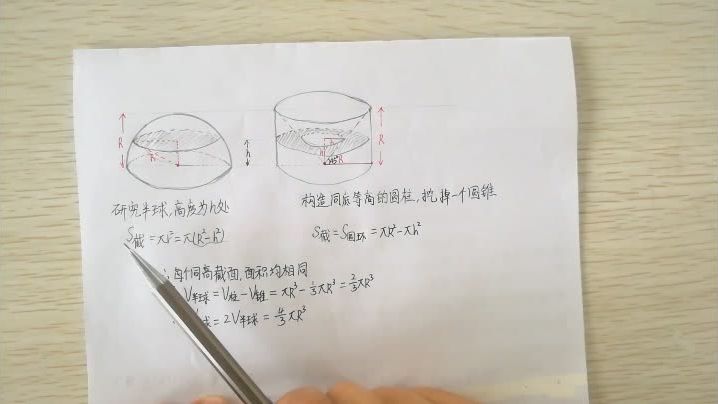 R
h
R
h
R
h
45°
R
研究半球,高度为h处
构造同底等高的圆柱,挖掉一个圆锥
S截=πr²=π(R²-h²)
S截=S圆环=πR²-πh²
两个同高截面,面积均相同
V半球=V柱-V锥=πR³-⅓πR³=⅔πR³
球=2V半球=4/3πR³